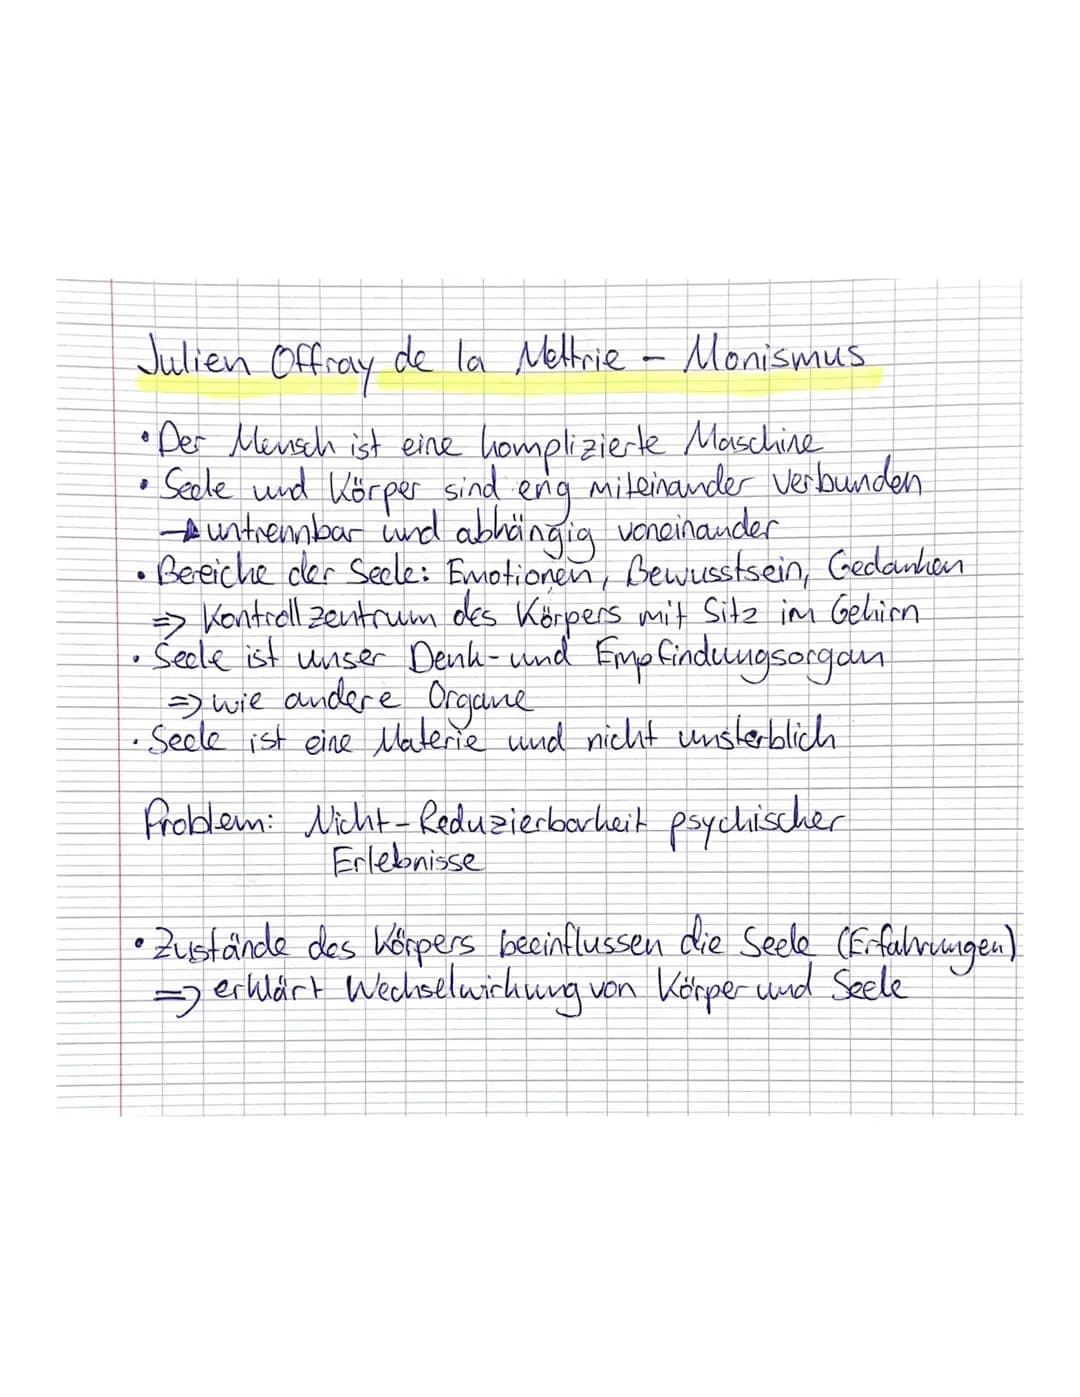 Julien Offray de la Mettrie - Monismus
• Der Mensch ist eine komplizierte Maschine
• Seele und Körper sind eng miteinander verbunden
→ untrennbar und abhängig voneinander
• Bereiche der Seele: Emotionen, Bewusstsein, Gedanken
=> Kontrollzentrum des Körpers mit Sitz im Gehirn
• Seele ist unser Denk- und Empfindungsorgan
=> wie andere Organe
• Seele ist eine Materie und nicht unsterblich
Problem: Nicht-Reduzierbarkeit psychischer
Erlebnisse
• Zustände des Körpers beeinflussen die Seele (Erfahrungen)
=> erklärt Wechselwirkung von Körper und Seele